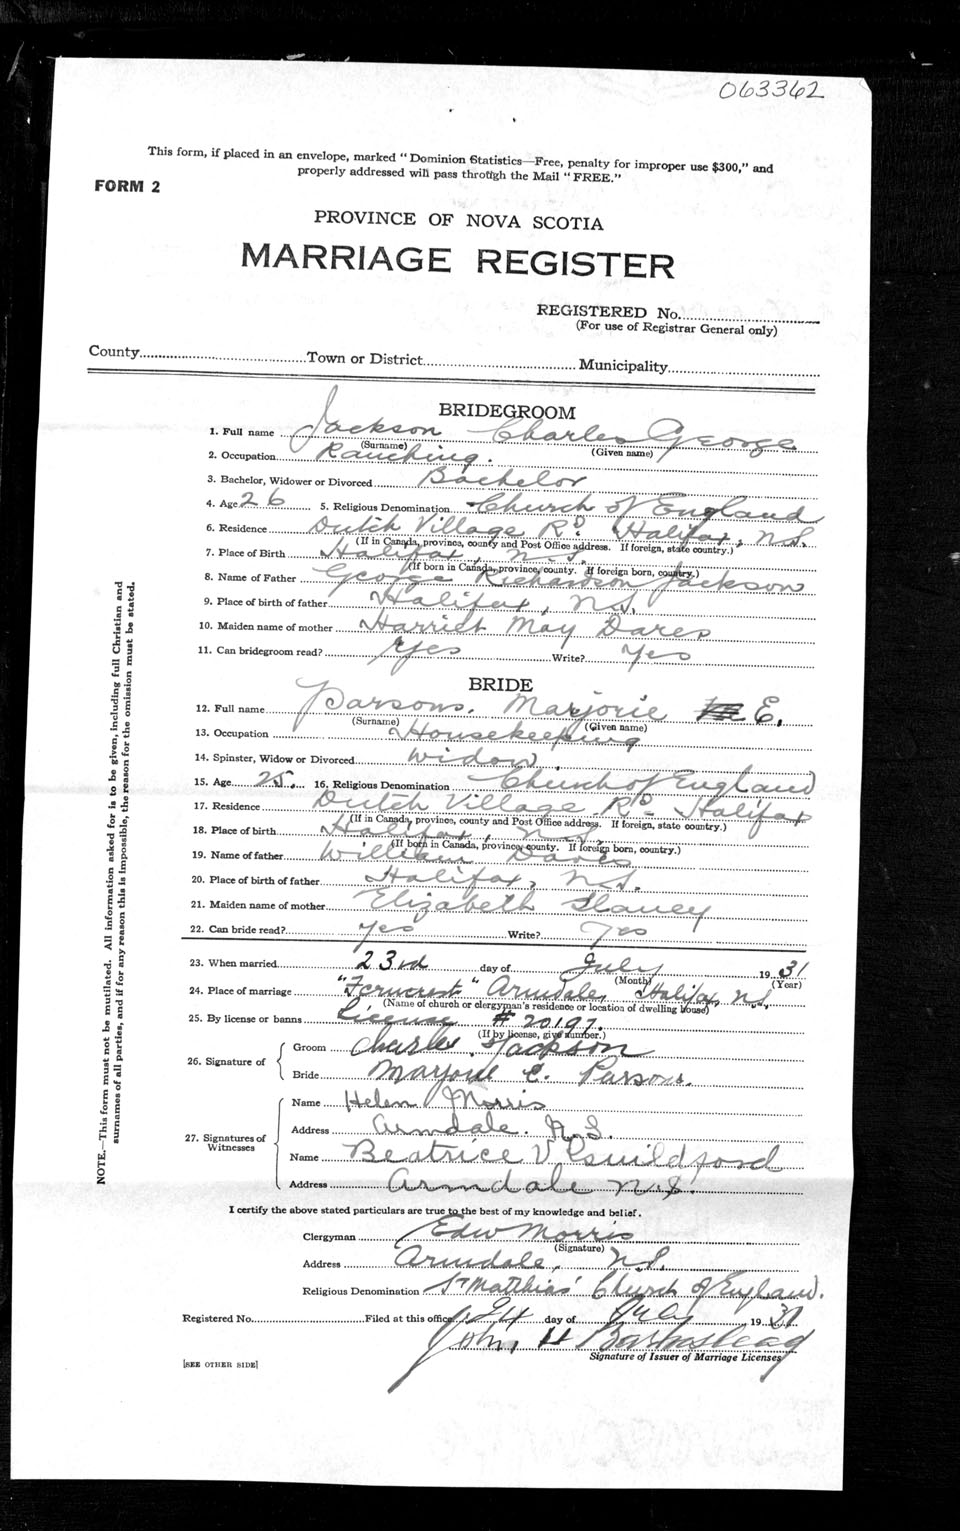 063362
This form, if placed in an envelope, marked "Dominion Statistics—Free, penalty for improper use $300," and
properly addressed will pass through the Mail "FREE."
FORM 2
PROVINCE OF NOVA SCOTIA
MARRIAGE REGISTER
REGISTERED No.
(For use of Registrar General only)
County Town or District Municipality
BRIDEGROOM
1. Full name Jackson Charles George
(Surname) (Given name)
2. Occupation Ranching.
3. Bachelor, Widower or Divorced Bachelor
4. Age 26 5. Religious Denomination Church of England
6. Residence Dutch Village Rd. Halifax, N.S.
(If in Canada, province, county and Post Office address. If foreign, state country.)
7. Place of Birth Halifax, N.S.
(If born in Canada, province, county. If foreign born, country.)
8. Name of Father George Richardson Jackson
9. Place of birth of father Halifax, N.S.
10. Maiden name of mother Harriet May Dares
11. Can bridegroom read? Yes Write? Yes
BRIDE
12. Full name Parsons. Marjorie E.
(Surname) (Given name)
13. Occupation Housekeeping
14. Spinster, Widow or Divorced Widow.
15. Age 25. 16. Religious Denomination Church of England
17. Residence Dutch Village Rd. Halifax
(If in Canada, province, county and Post Office address. If foreign, state country.)
18. Place of birth Halifax, N.S.
(If born in Canada, province, county. If foreign born, country.)
19. Name of father William Dares
20. Place of birth of father Halifax, N.S.
21. Maiden name of mother Elizabeth Slaney
22. Can bride read? Yes Write? Yes
23. When married 23rd day of July 1931
(Month) (Year)
24. Place of marriage "Ferncrest" Armdale, Halifax, N.S.
(Name of church or clergyman's residence or location of dwelling house)
25. By license or banns License # 20197.
(If by license, give number.)
26. Signature of Groom Charles. Jackson
Bride Marjorie E. Parsons.
27. Signatures of Witnesses
Name Helen Morris
Address Armdale. N.S.
Name Beatrice V Guildford
Address Armdale N.S.
I certify the above stated particulars are true to the best of my knowledge and belief.
Clergyman Edw Morris
(Signature)
Address Armdale, N.S.
Religious Denomination St Matthias' Church of England.
Registered No. Filed at this office 24 day of July 1931
John H Barnstead
Signature of Issuer of Marriage Licenses
[SEE OTHER SIDE]
NOTE.—This form must not be mutilated. All information asked for is to be given, including full Christian and
surnames of all parties, and if for any reason this is impossible, the reason for the omission must be stated.